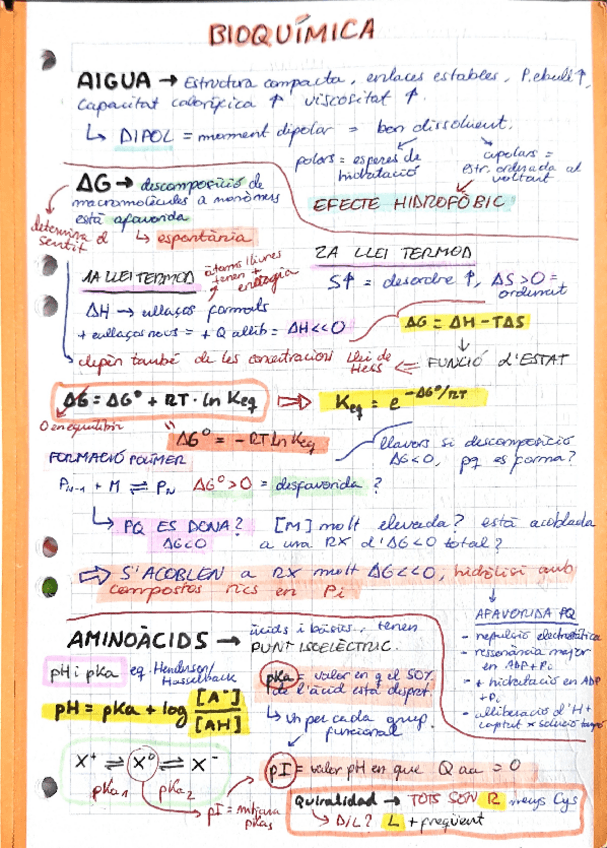 BIOQUÍMICA
AIGUA → Estructura compacta, enlaces estables, P.ebull ↑,
Capacitat calorífica ↑, viscositat ↑.
↳ DIPOL = moment dipolar = bon dissolvent.
polars = esperes de
hidratació
apolars =
estr. ordenada al
voltant
EFECTE HIDROFÒBIC
ΔG → descomposició de
macromolècules a monòmers
està afavorida
determina el
sentit
↳ espontània
1A LLEI TERMOD
àtoms lliures
tenen +
energia
ΔH → enllaços formats
+ enllaços nous = + Q allib = ΔH<<0
2A LLEI TERMOD
S↑ = desordre ↑, ΔS>0 =
ΔG = ΔH - TΔS
↓
FUNCIÓ d'ESTAT
Llei de
Hess
depèn també de les concentracions
ΔG = ΔG° + RT · ln Keq
⇒ Keq = e^-ΔG°/RT
0 en equilibri
ΔG° = -RT ln Keq
llavors si descomposició
ΔG<0, pq es forma?
FORMACIÓ POLÍMER
Pn-1 + M ⇌ PN ΔG°>0 = desfavorida ?
↳ PQ ES DONA? [M] molt elevada? està acoblada
ΔG<0 a una RX d'ΔG<0 total?
⇒ S'ACOBLEN a RX molt ΔG<<0, hidròlisi amb
compostos rics en Pi
AFAVORIDA PQ
- repulsió electrostàtica
- ressonància major
en ADP + Pi
- + hidratació en ADP
+ Pi
- alliberació d'H+
captat x solució tampó
AMINOÀCIDS → àcids i bàsics, tenen
PUNT ISOELÈCTRIC.
pH i pKa eq. Henderson/
Hasselback
pH = pKa + log [A⁻]/[AH]
pKa = valor en q el 50%
de l'àcid està disprot.
↳ Un per cada grup
funcional
X⁺ ⇌ X⁰ ⇌ X⁻
pKa1 pKa2
pI = mitjana
pKas
pI = valor pH en que Q aa = 0
Quiralidad → TOTS SON R menys Cys
↳ D/L? L + freqüent